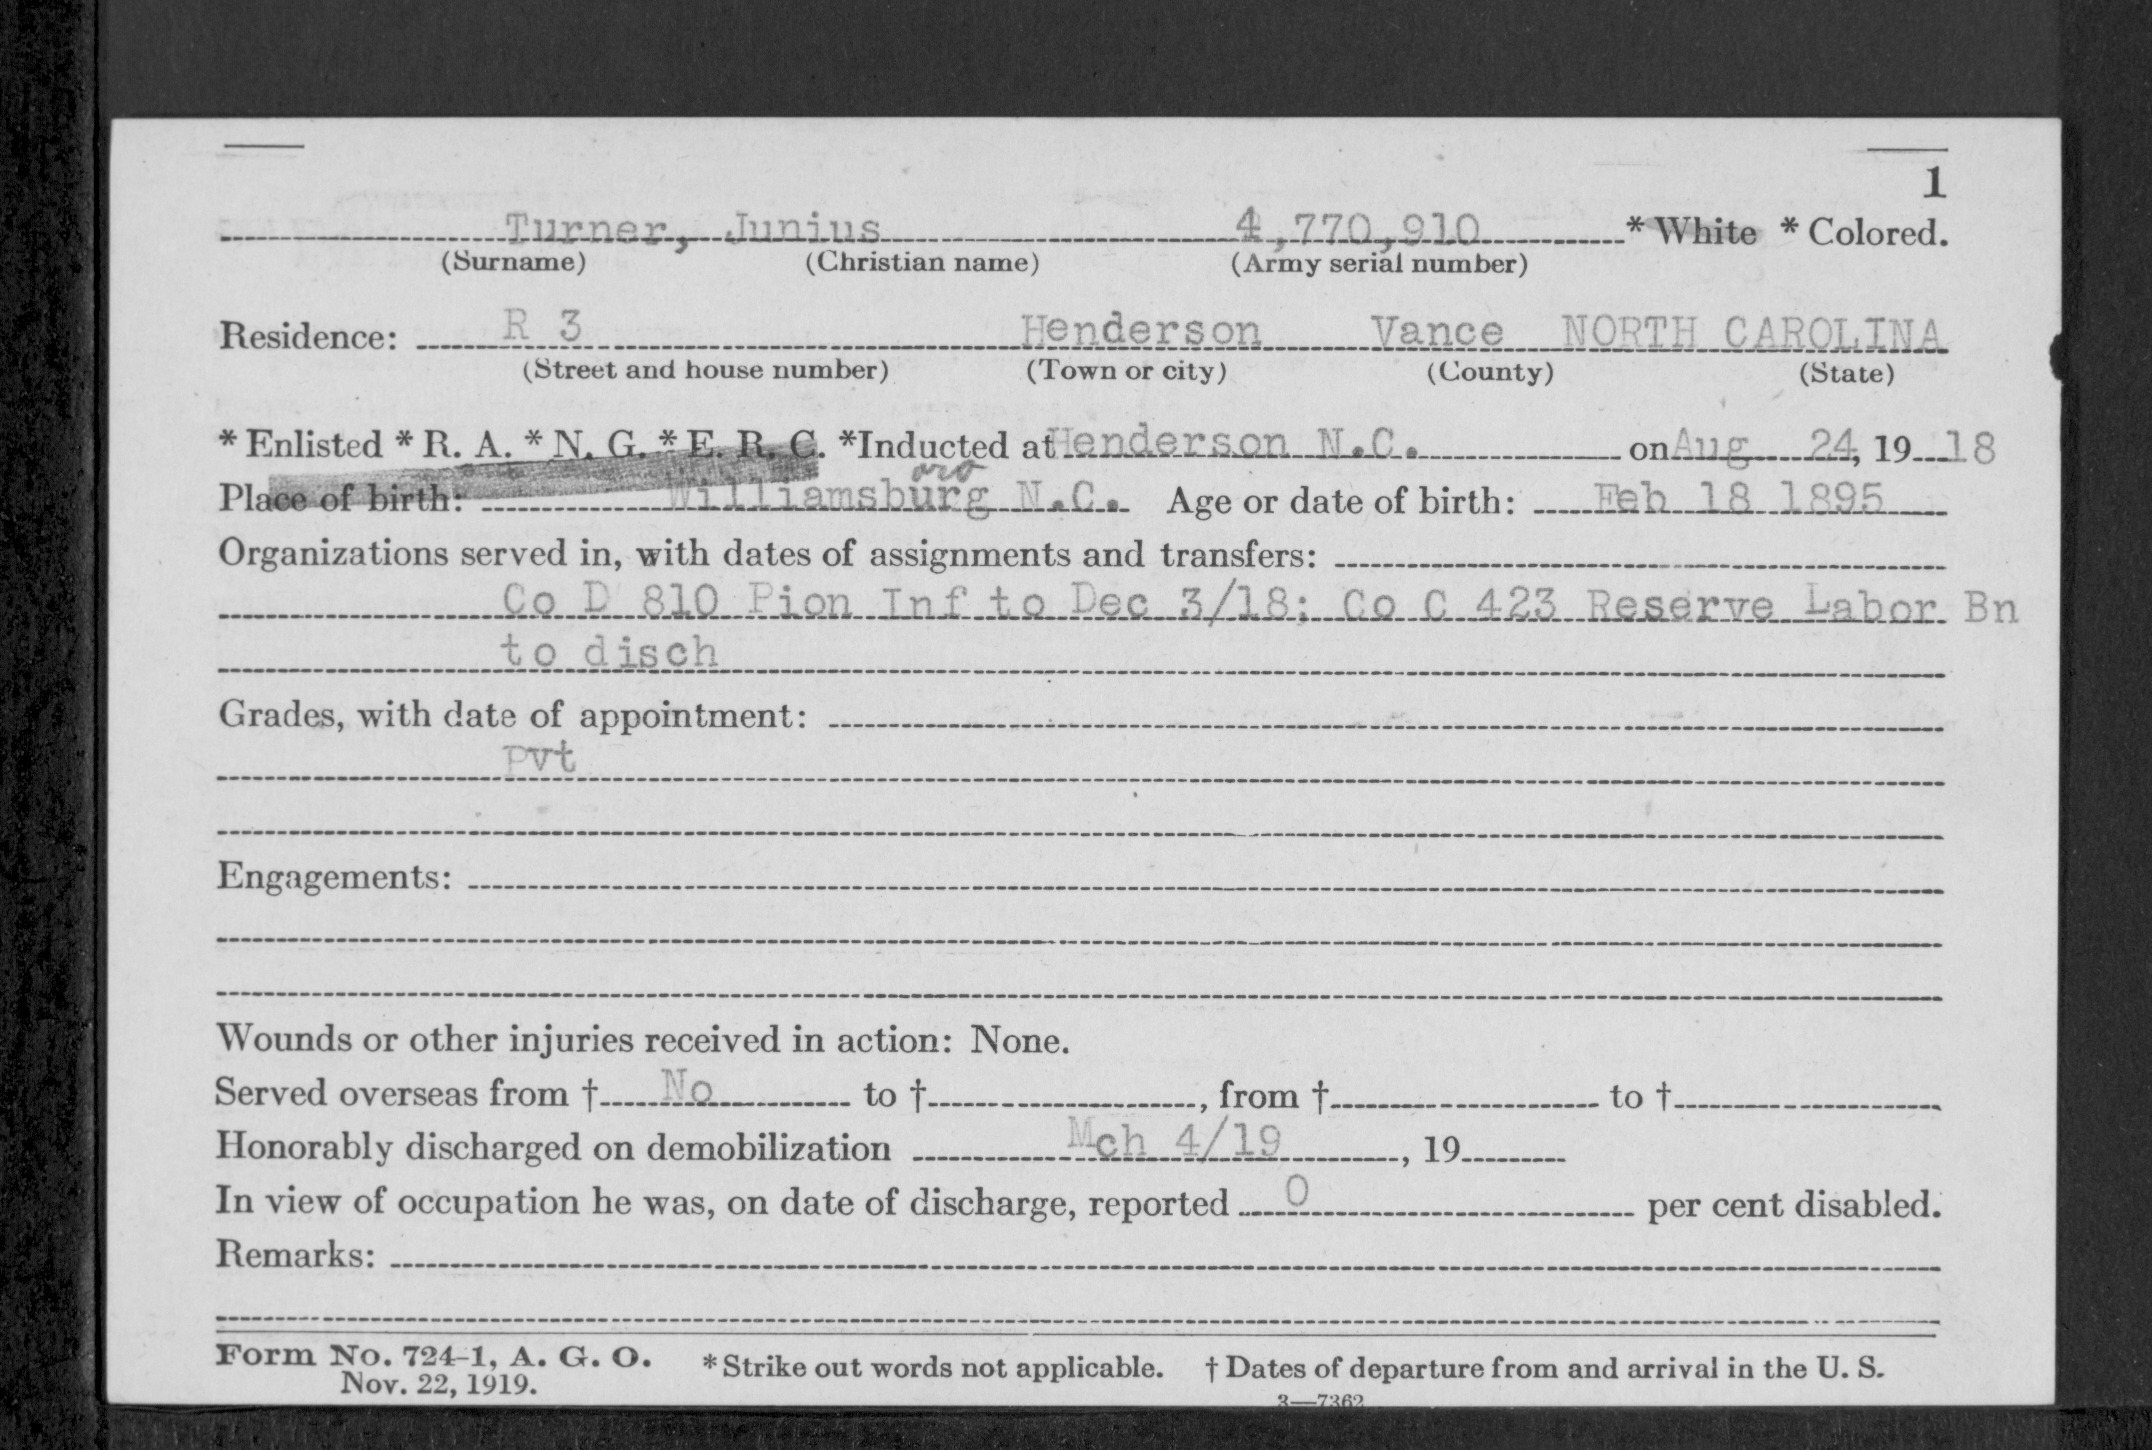 1
Turner, Junius 4,770,910 * White * Colored.
(Surname) (Christian name) (Army serial number)
Residence: R 3 Henderson Vance NORTH CAROLINA
(Street and house number) (Town or city) (County) (State)
* Enlisted * R. A. * N. G. * E. R. C. *Inducted at Henderson N.C. on Aug 24, 19 18
oro
Place of birth: Williamsburg N.C. Age or date of birth: Feb 18 1895
Organizations served in, with dates of assignments and transfers:
Co D 810 Pion Inf to Dec 3/18; Co C 423 Reserve Labor Bn
to disch
Grades, with date of appointment:
Pvt
Engagements:
Wounds or other injuries received in action: None.
Served overseas from † No to †, from † to †
Honorably discharged on demobilization Mch 4/19, 19
In view of occupation he was, on date of discharge, reported 0 per cent disabled.
Remarks:
Form No. 724-1, A. G. O. * Strike out words not applicable. † Dates of departure from and arrival in the U. S.
Nov. 22, 1919.
3—7362